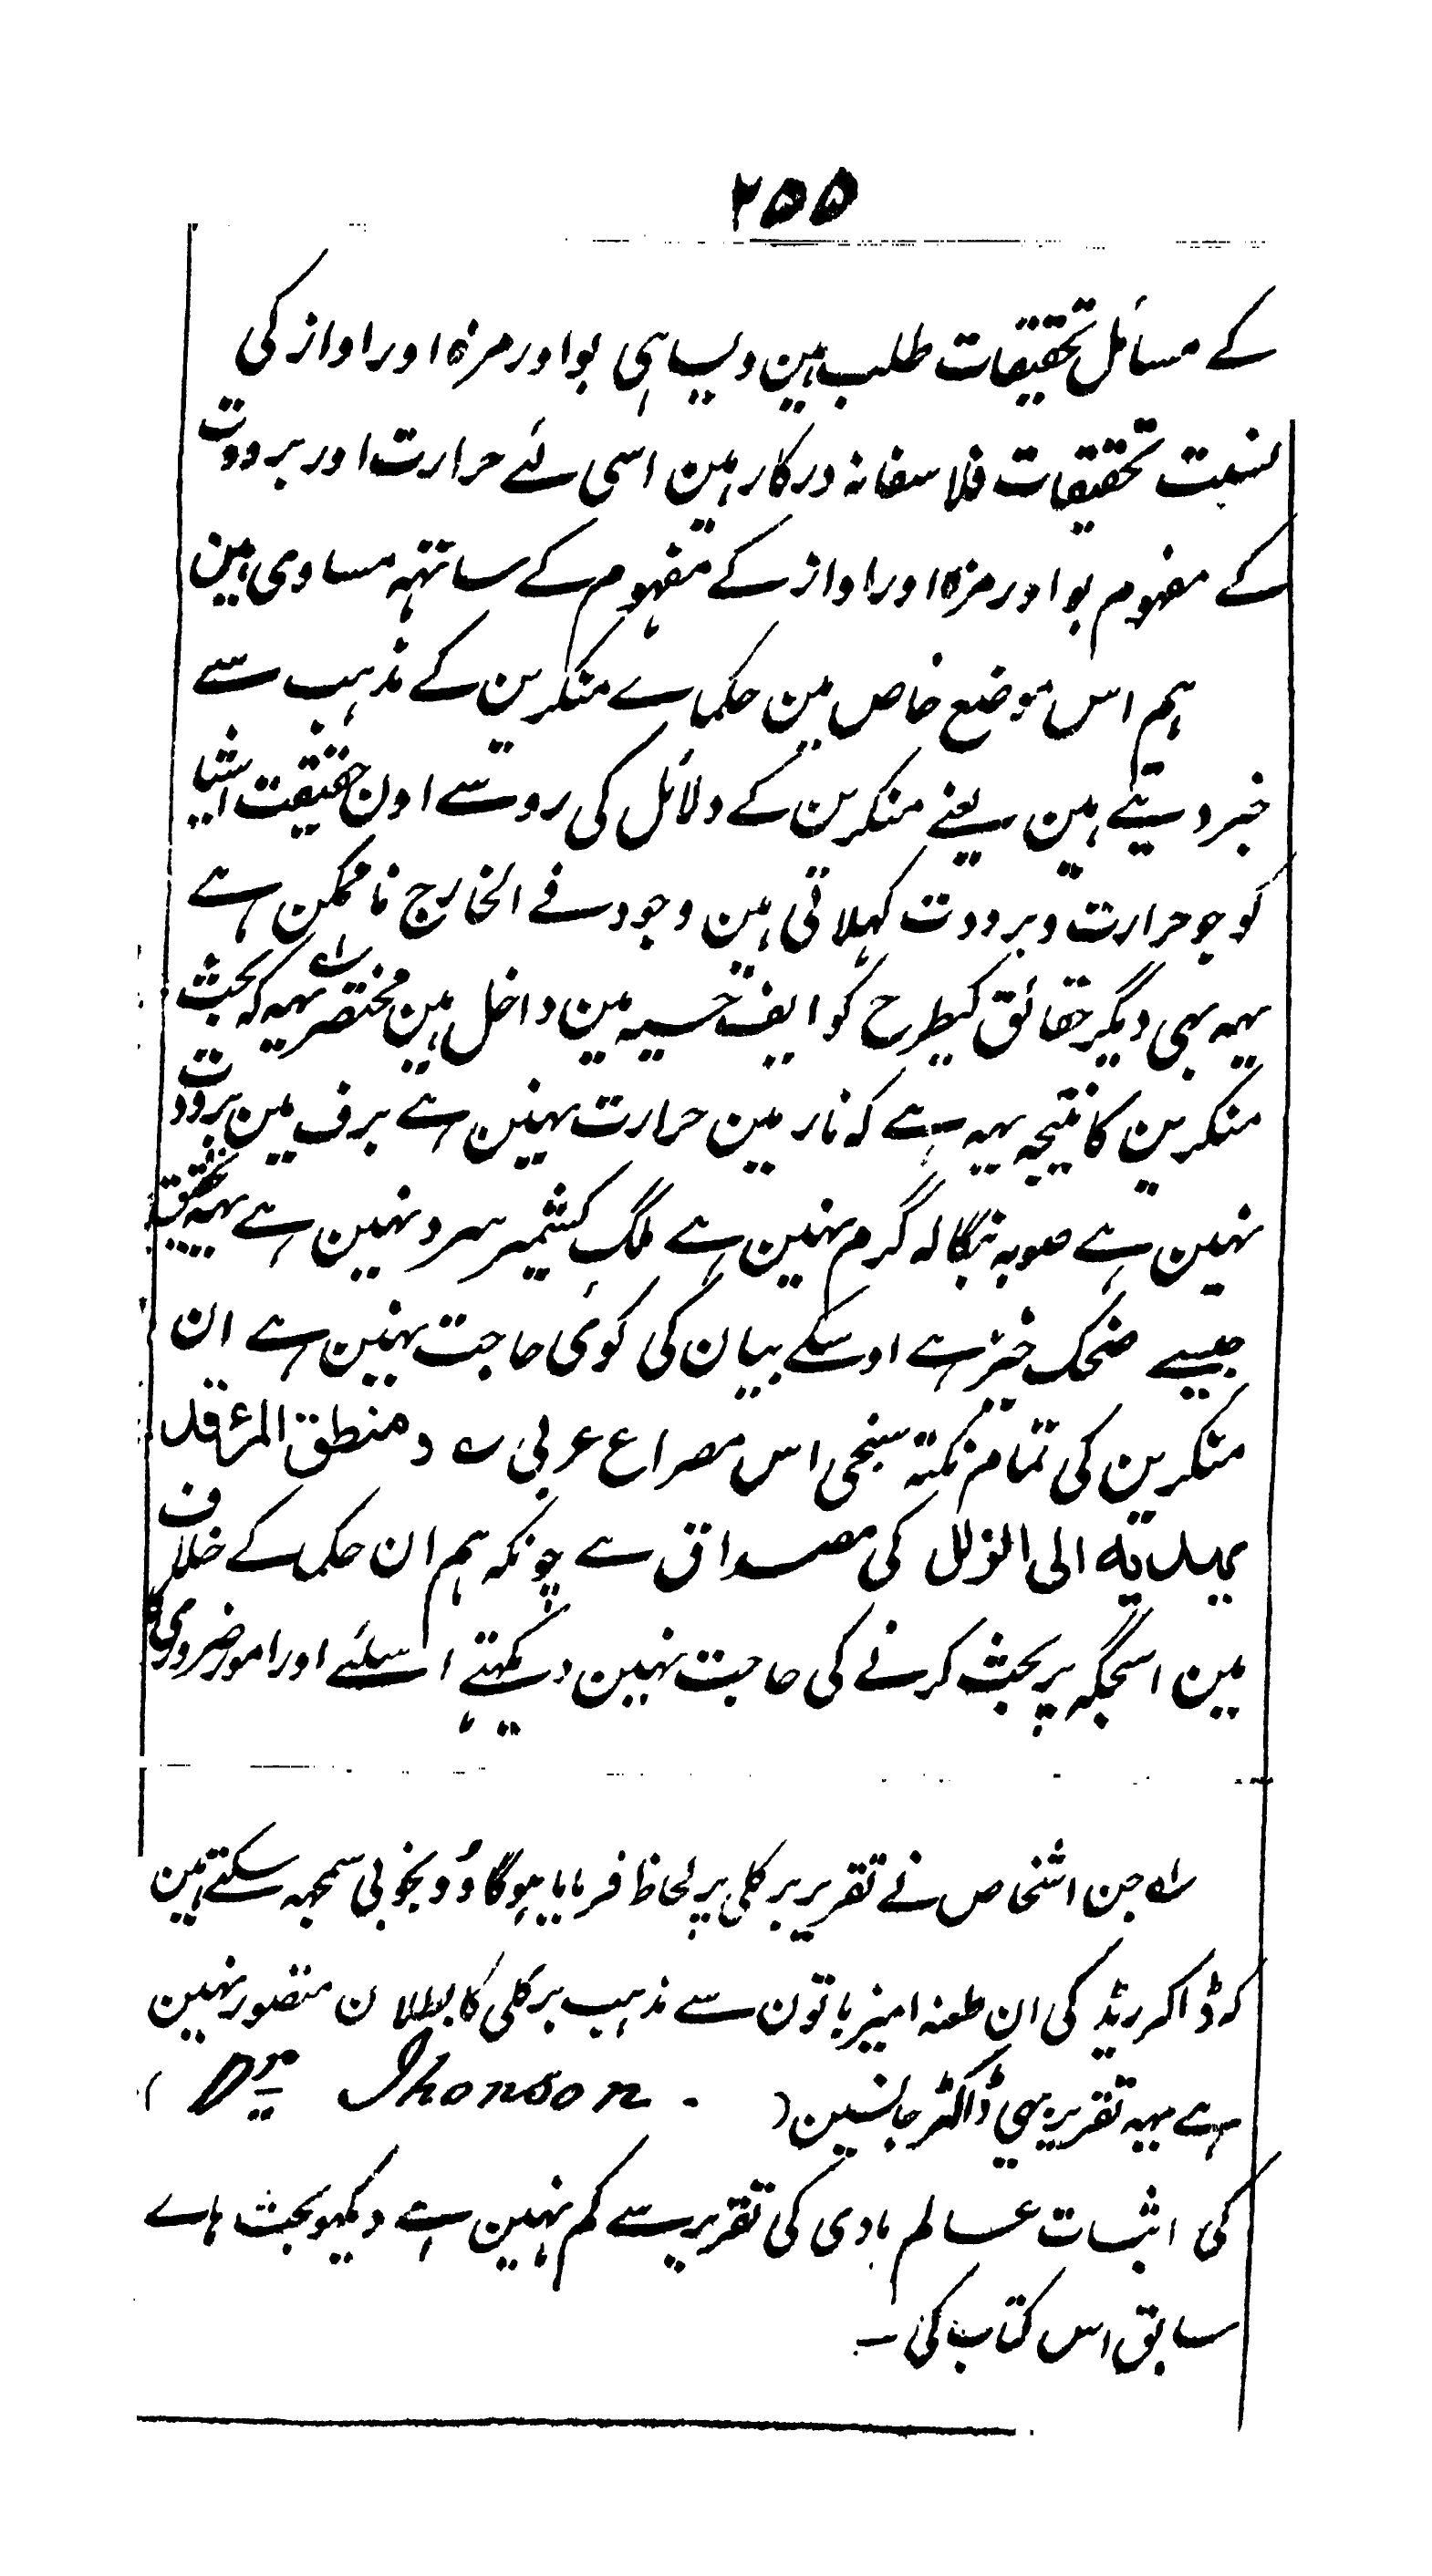 ۲۵۵
کے مسائل تحقیقات طلب ہین ویسا ہی بو اور مزہ اور اواز کی
نسبت تحقیقات فلاسفانہ درکار ہین اسی لئے حرارت اور برودت
کے مفہوم بو اور مزہ اور اواز کے مفہوم کے ساتھہ مساوی ہین
ہم اس موضع خاص مین حکماے منکرین کے مذہب سے
خبر دیتے ہین یعنے منکرین کے دلائل کی رو سے اون حقیقت اشیا
کو جو حرارت و برودت کہلاتی ہین وجود فے الخارج ناممکن ہے
یہہ بہی دیگر حقائق کیطرح کوایف حسیہ مین داخل ہین مختصر یہہ کہ بحث
منکرین کا نتیجہ یہہ ہے کہ نار مین حرارت نہین ہے برف مین برودت
نہین ہے صوبہ بنگالہ گرم نہین ہے ملک کشمیر سرد نہین ہے یہہ تحقیق
جیسے ضحک خیز ہے اوسکے بیان کی کوئی حاجت نہین ہے ان
منکرین کی تمام نکتہ سنجی اس مصراع عربی ؎ و منطق المرٔ قد
یہدیه الی الزلل کی مصداق ہے چونکہ ہم ان حکما کے خلاف
مین اسجگہ پر بحث کرنے کی حاجت نہین دیکہتے اسلئے اور امور ضروری
؎ جن اشخاص نے تقریر برکلی پر لحاظ فرمایا ہوگا وُو بخوبی سمجہہ سکتے ہین
کہ ڈاکر ریڈ کی ان طعنہ امیز باتون سے مذہب برکلی کا بطلان متصور نہین
ہے یہہ تقریر بہی ڈاکٹر جانسین ( Dr Jhonson. )
کی اثبات عالم مادی کی تقریر سے کم نہین ہے دیکہو بحث ہاے
سابق اس کتاب کی ۔